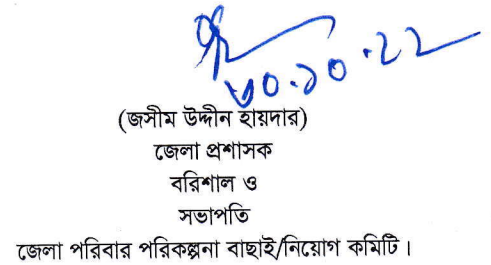 ৩০.১০.২২
(জসীম উদ্দীন হায়দার)
জেলা প্রশাসক
বরিশাল ও
সভাপতি
জেলা পরিবার পরিকল্পনা বাছাই/নিয়োগ কমিটি।